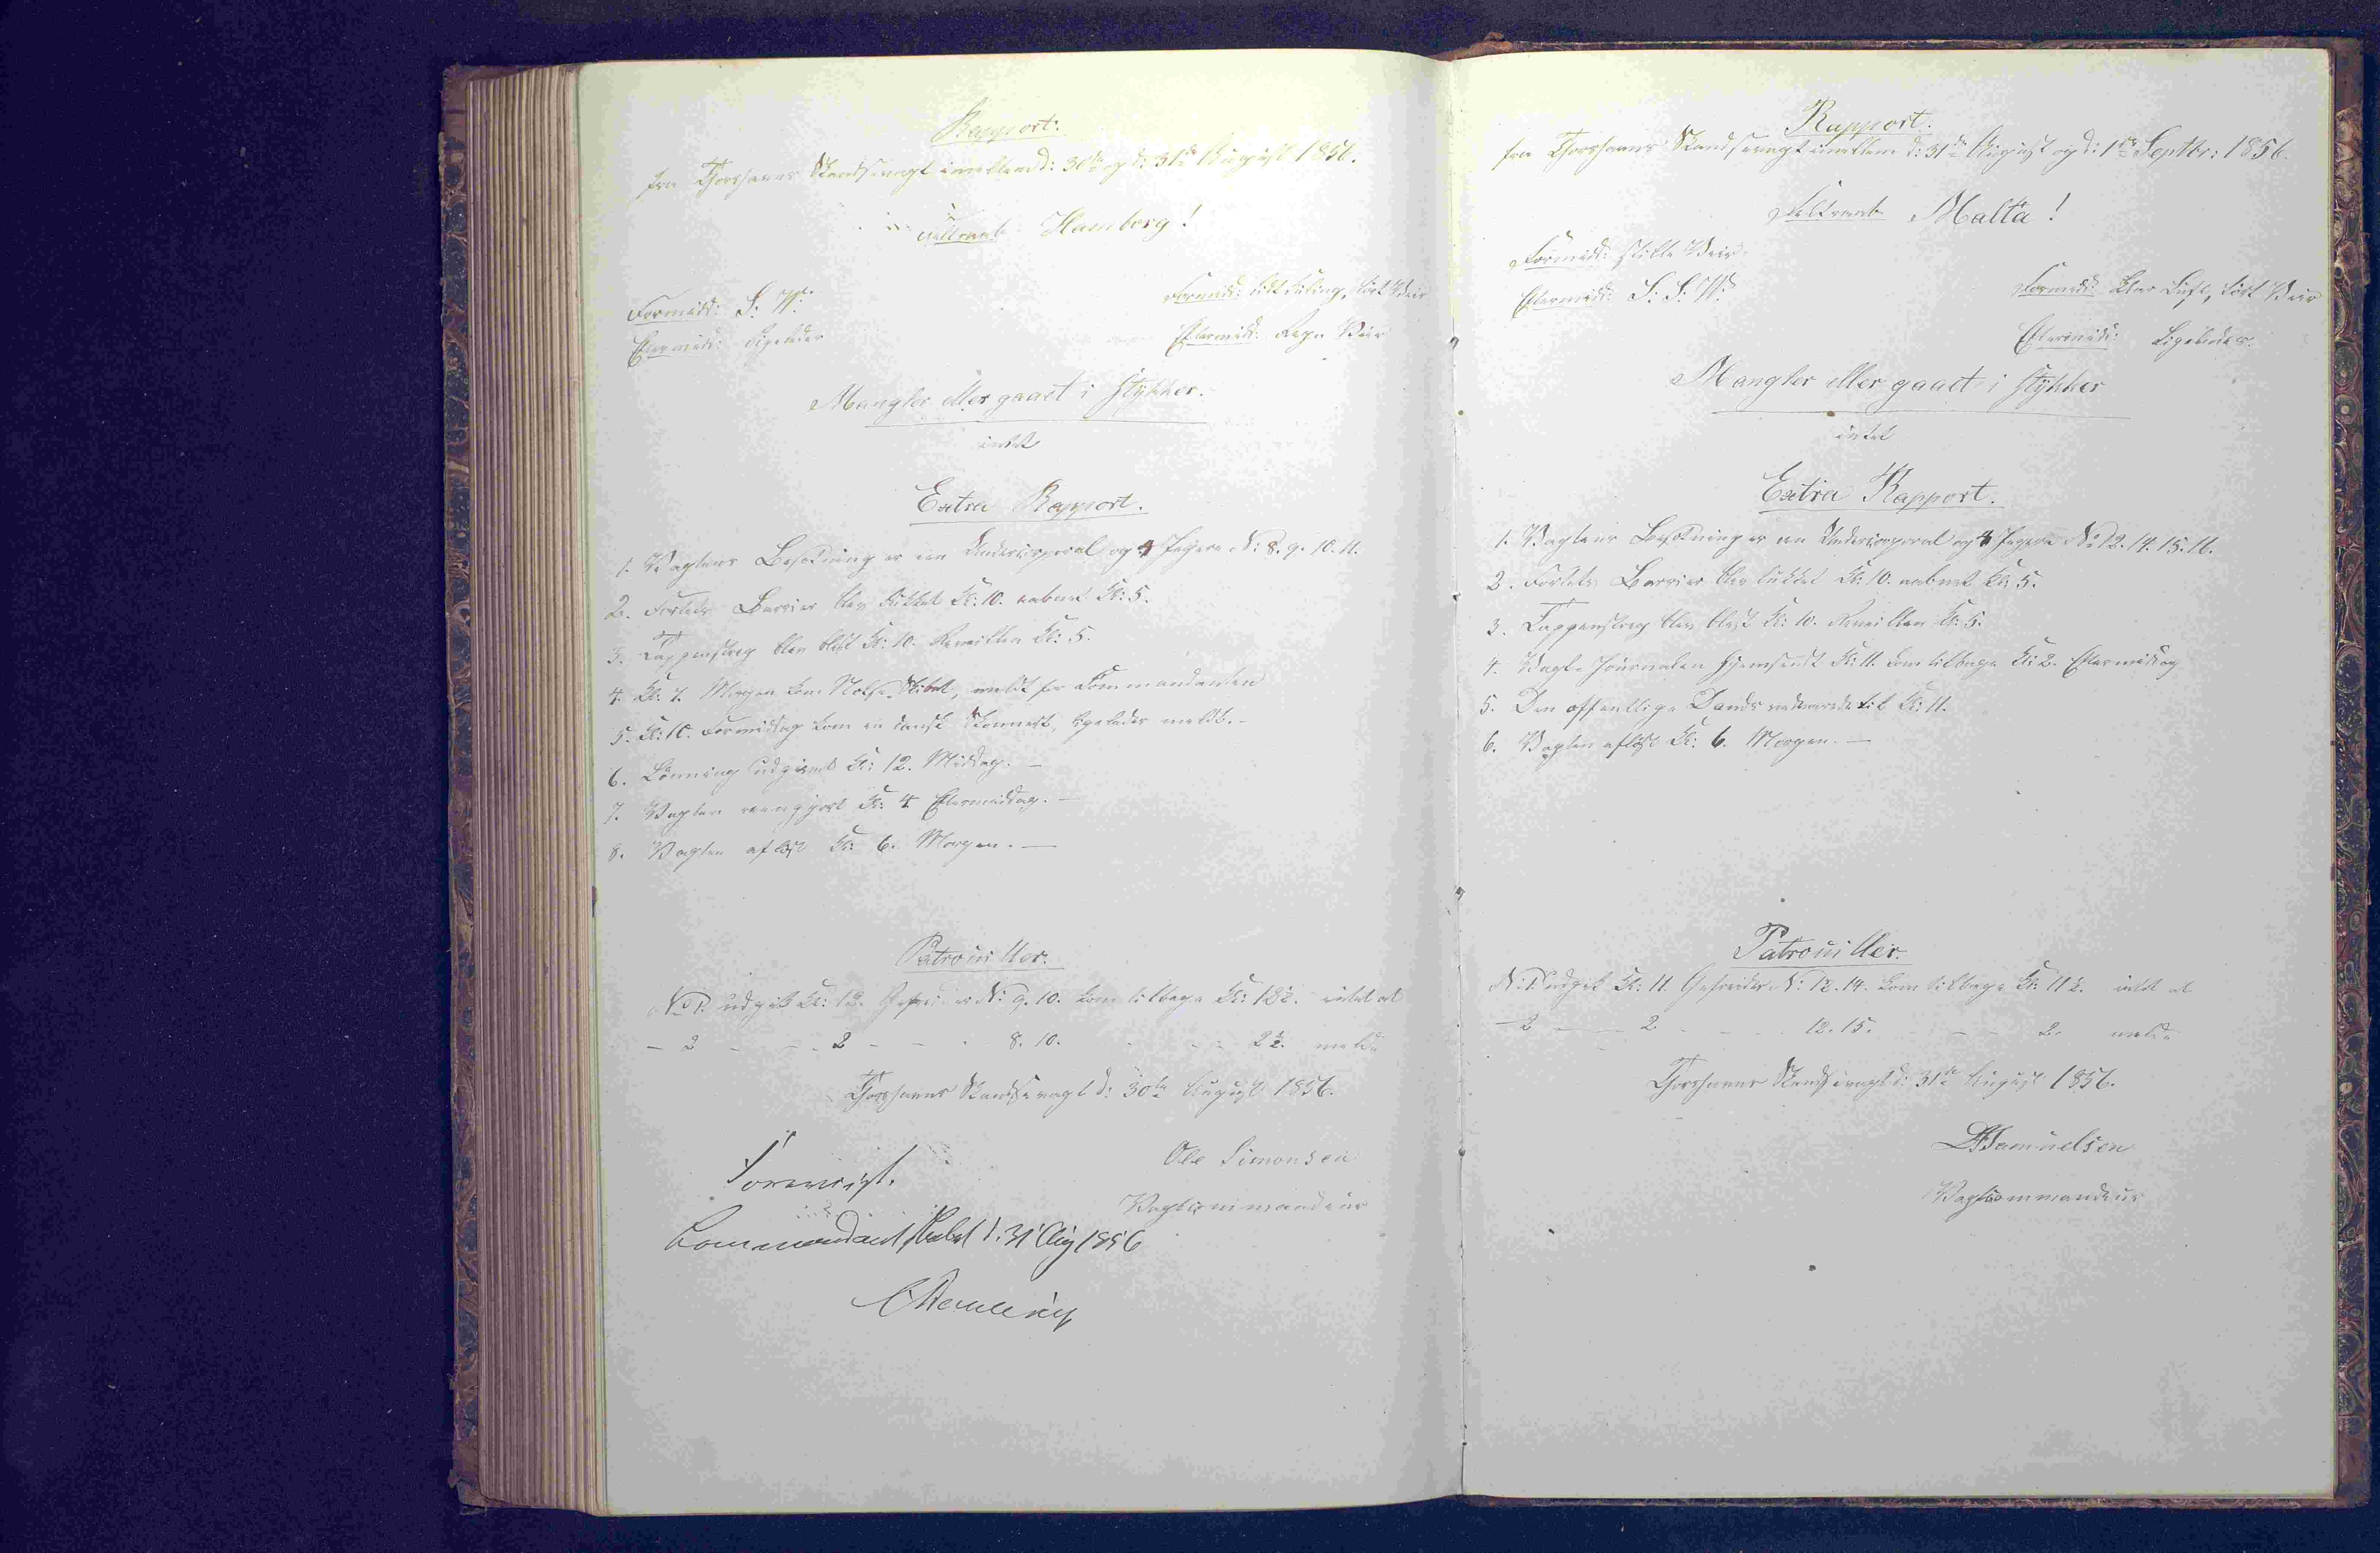 Rapport:
fra Thorshavns Skandsevagt imellem d: 30te og d: 31te August 1856.
Feltraab: Hamborg!
Formidd: S: W:
Formidd: lidt Kuling, tört Veir
Eftermidd: Ligeledes
Eftermidd: Regn Veir
Mangler eller gaaet i Stykker.
intet
Extra Rapport.
1. Vagtens Besætning er een Undercorporal og 4 Jægere N: 8. 9. 10. 11.
2. Fortets Barrier blev lukket Kl: 10. aabnet Kl: 5.
3. Tappenstreg blev blæst Kl: 10. Reveillen Kl: 5.
4. Kl: 7. Morgen kom Nolsø Skibet, meldt for Commandanten
5. Kl: 10. Formiddag kom en dansk Skonnert, ligeledes meldt. -
6. Lönning udgivet Kl: 12. Middag. -
7. Vagten reengjort Kl: 4 Eftermiddag. -
8. Vagten aflöst Kl: 6. Morgen. -
Patrouiller.
No 1. udgik Kl: 12. Gefreider N: 9. 10. kom tilbage Kl: 12½. intet at
- 2 - - 2 - - 8. 10. - - 2½. melde
Thorshavns Skandsevagt d: 30te August 1856.
Ole Simonsen
Foreviist.
Vagtcommandeur
Commandantskabet d. 31 Aug 1856
Rapport.
fra Thorshavns Skandsevagt imellem d: 31te August og d: 1ste Septbr: 1856.
Feltraab Malta!
Formidd: stille Veir
Formidd: klar Luft, tört Veir
Eftermidd: S: S: W:
Eftermidd: Ligeledes.
Mangler eller gaaet i Stykker
intet
Extra Rapport.
1. Vagtens Besætning er en Undercorporal og 4 Jægere No 12. 14. 15. 16.
2. Fortets Barrier blev lukket Kl: 10. aabnet Kl: 5.
3. Tappenstreg blev blæst Kl: 10. Reveillen Kl: 5.
4. Vagt-Journalen hjemsendt Kl: 11. kom tilbage Kl: 2. Eftermiddag
5. Den offentlige Dands vedvarede til Kl: 11.
6. Vagten aflöst Kl: 6. Morgen. -
Patrouiller.
N: 1. udgik Kl: 11. Gefreider N: 12. 14. kom tilbage Kl: 11½. intet at
- 2 - - 2 - - 12. 15. - - 2½ melde
Thorshavns Skandsevagt d: 31te August 1856.
Samuelsen
Vagtcommandeur